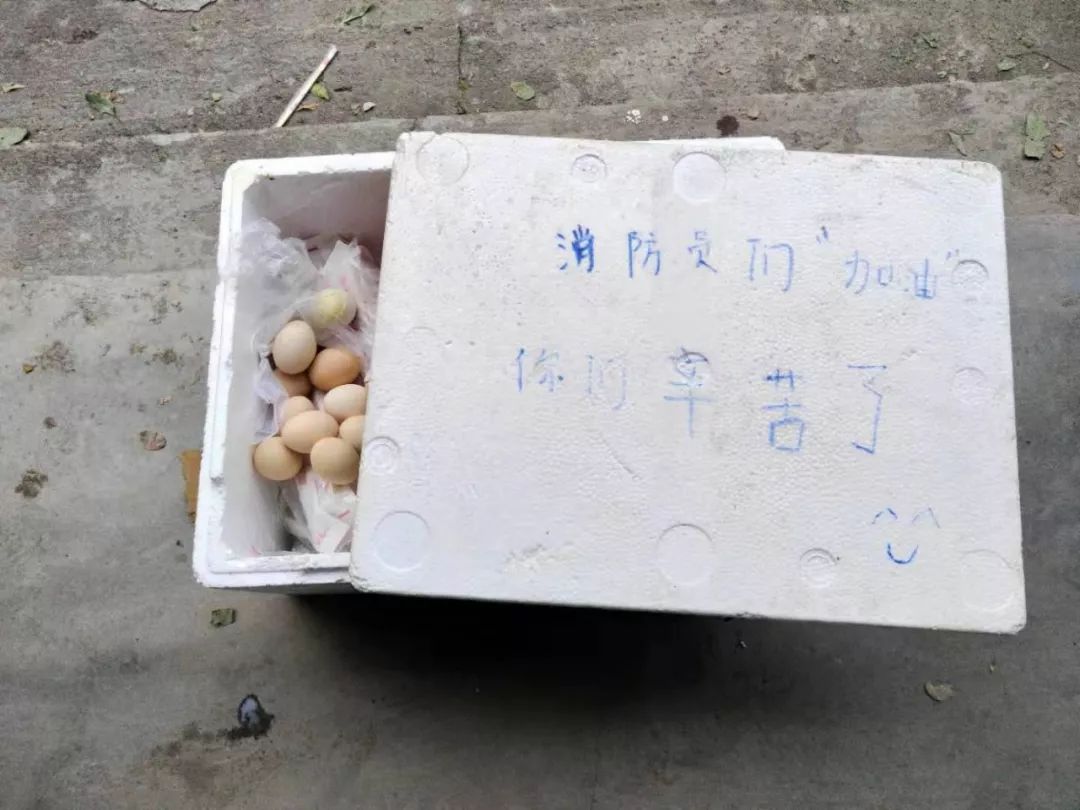 消防员们“加油”
你们辛苦了